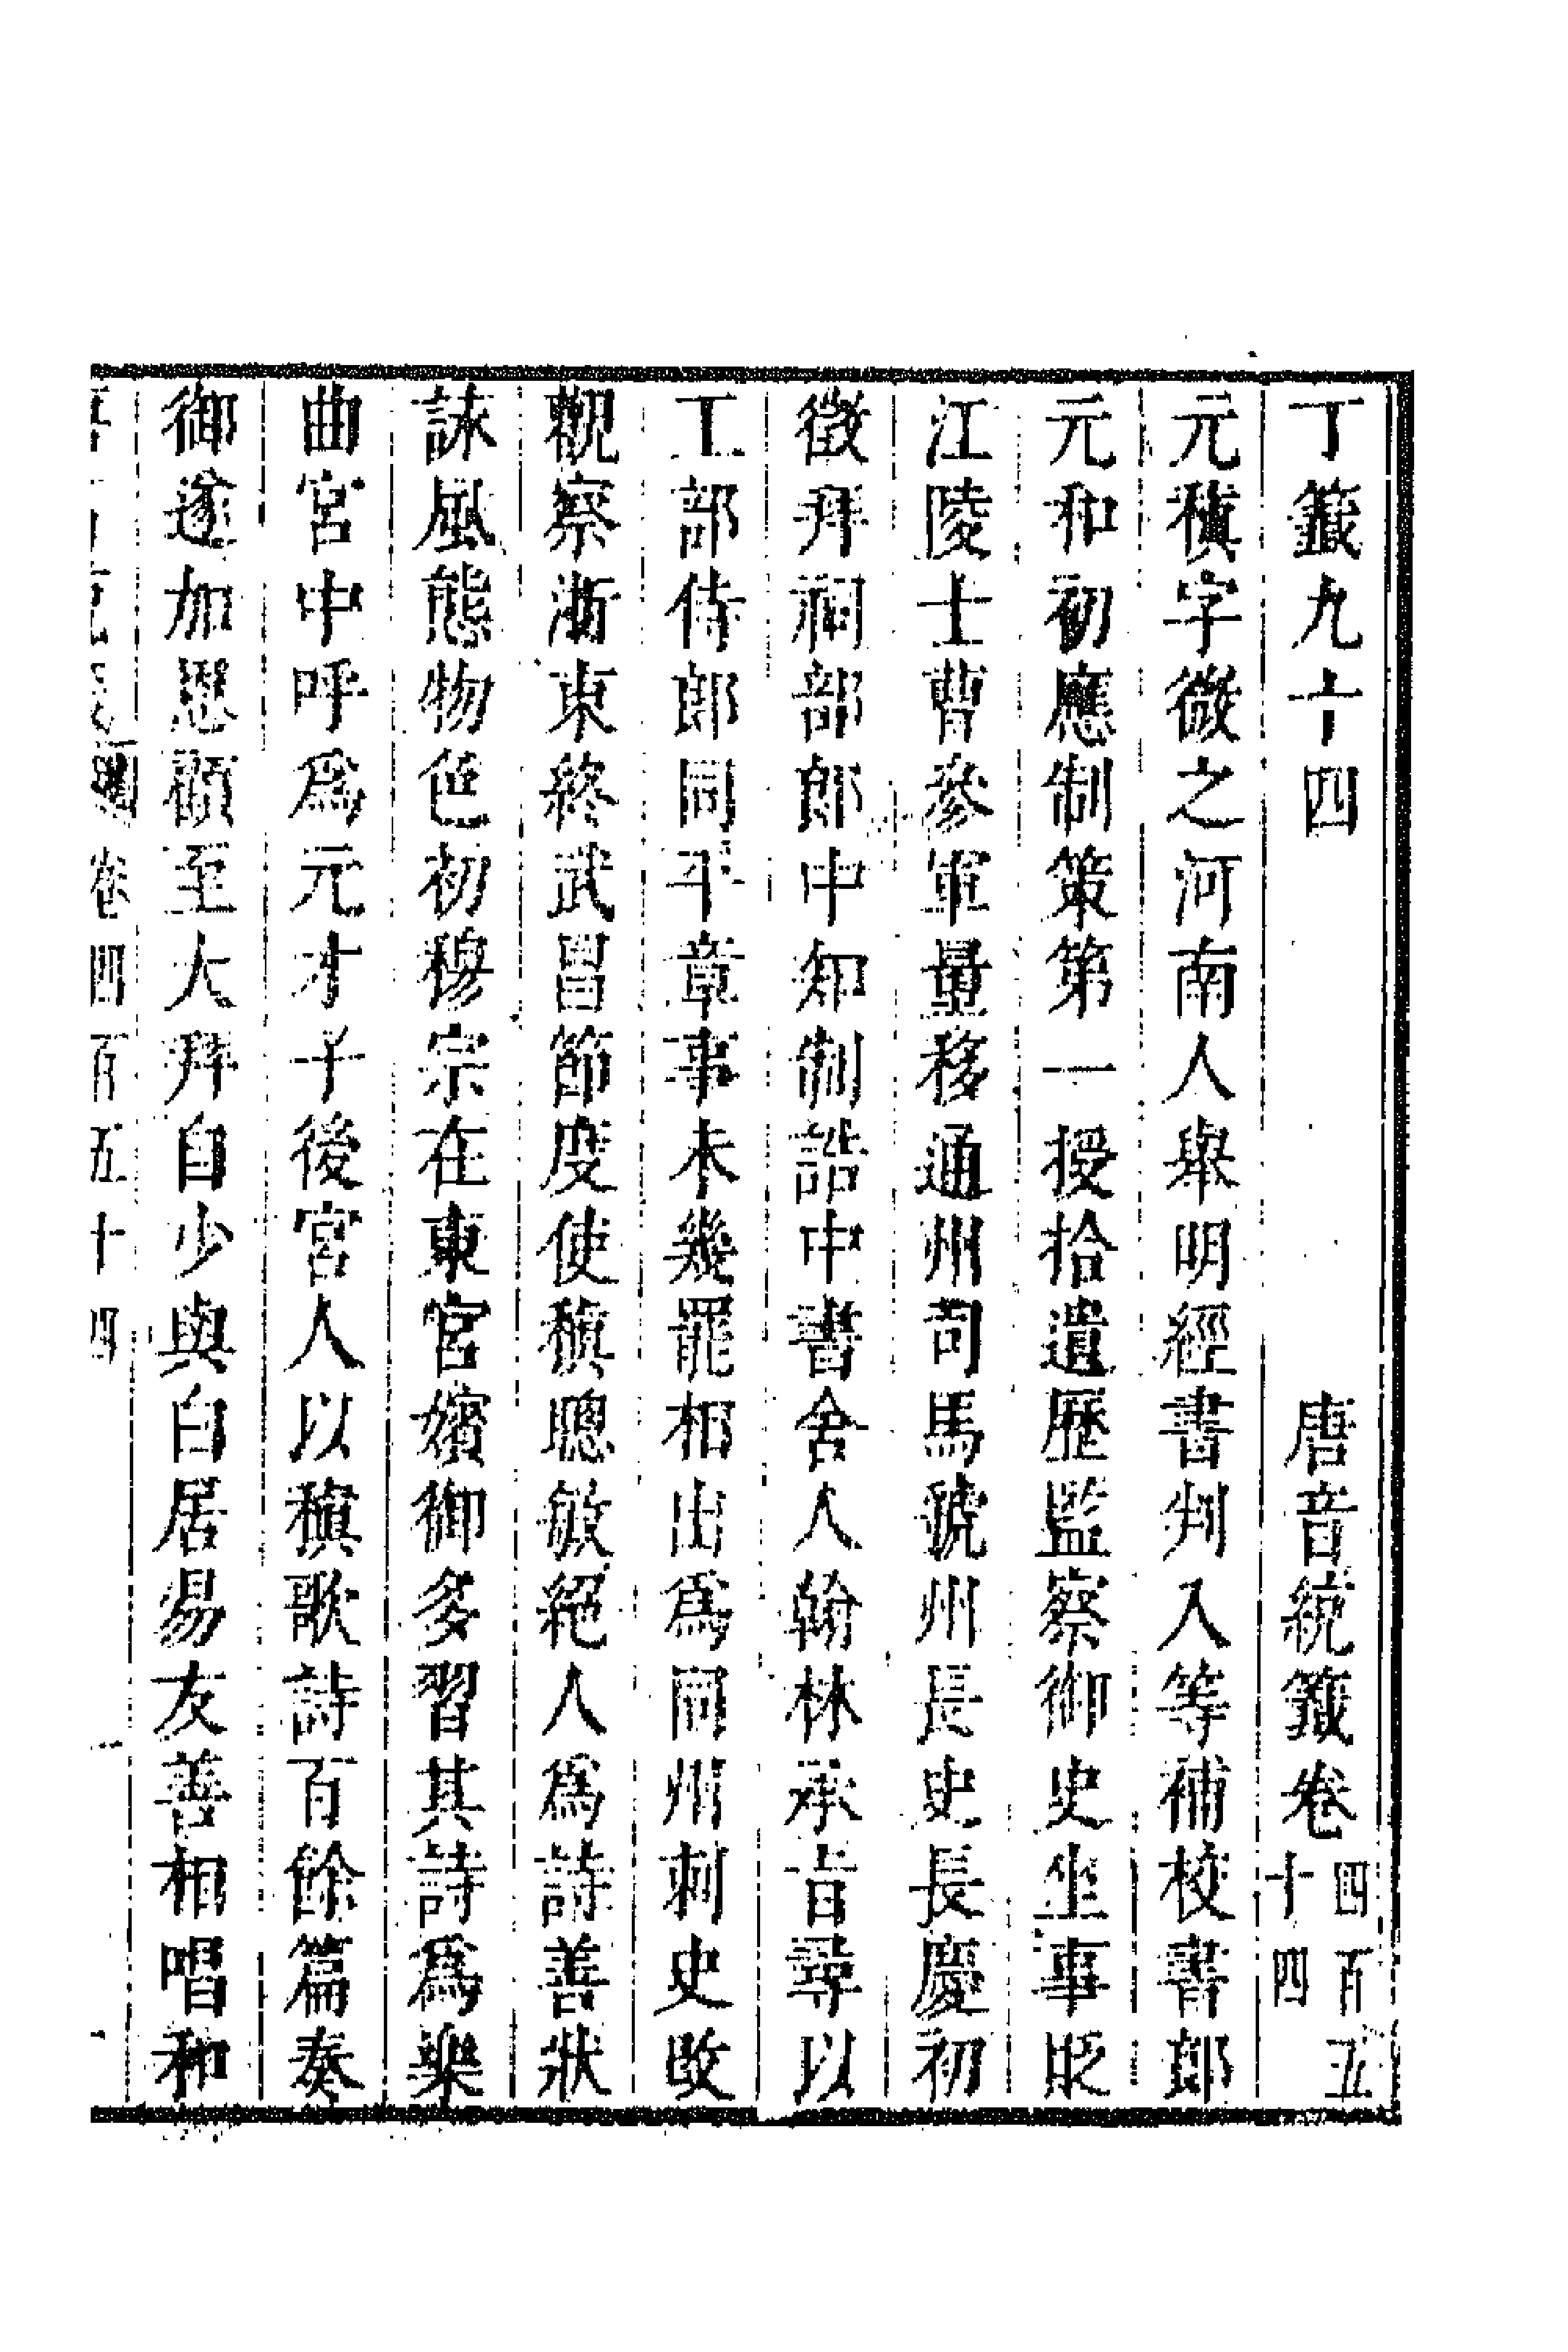 丁籤九十四 唐音統籤卷四百五十四
元稹字微之河南人舉明經書判入等補校書郎
元和初應制策第一授拾遺歷監察御史坐事貶
江陵士曹參軍量移通州司馬虢州長史長慶初
徵拜祠部郎中知制誥中書舍人翰林承旨尋以
工部侍郎同平章事未幾罷相出爲同州刺史改
觀察浙東終武昌節度使稹聰敏絕人爲詩善狀
詠風態物色初穆宗在東宮嬪御多習其詩爲樂
曲宮中呼爲元才子後宮人以稹歌詩百餘篇奏
御遂加恩顧至大拜自少與白居易友善相唱和
卷四百五十四